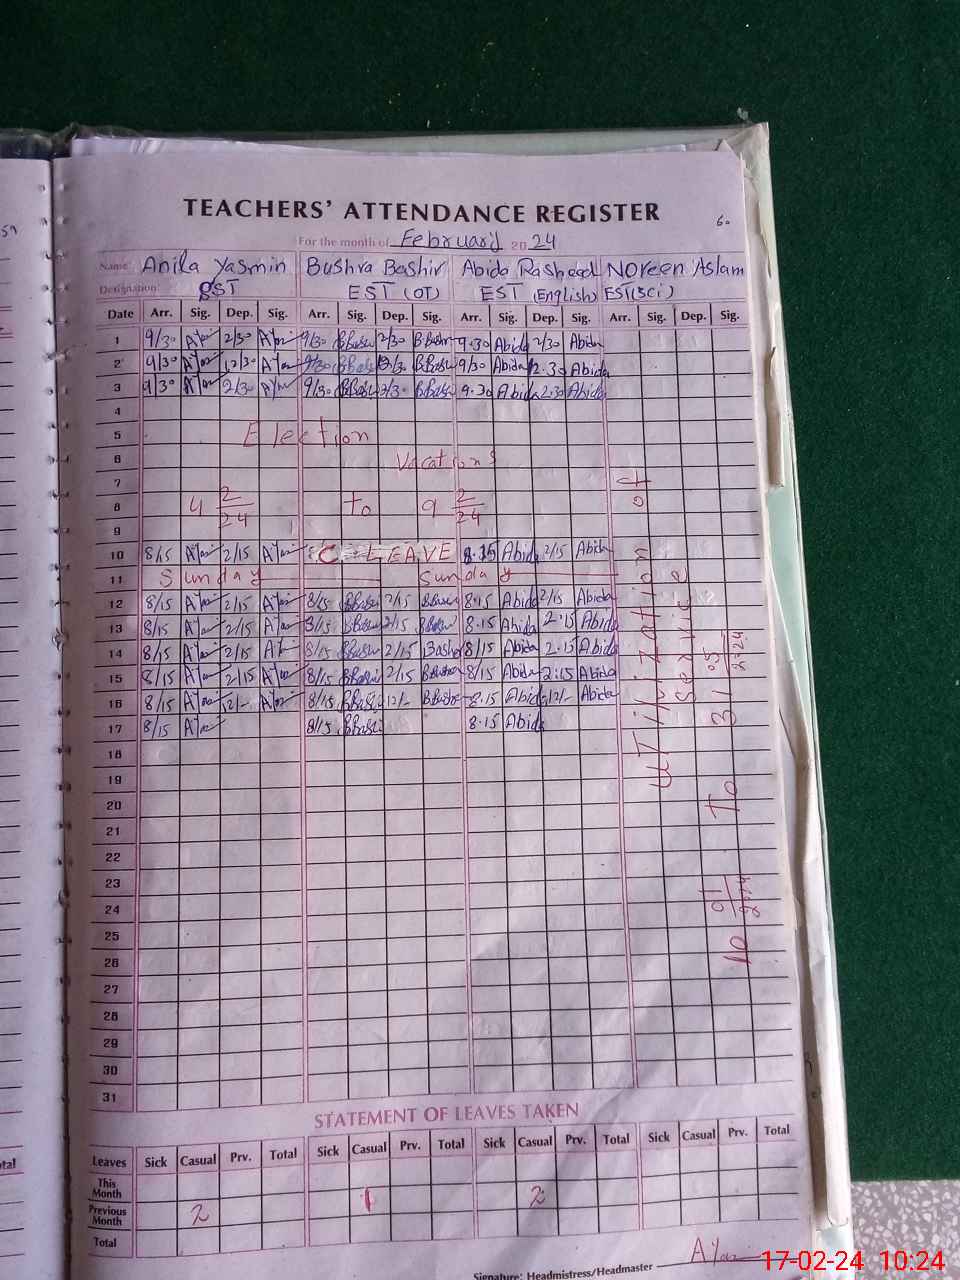 TEACHERS' ATTENDANCE REGISTER
For the month of February 2024
Name: Anila Yasmin Bushra Bashir Abida Rasheed Noreen Aslam
Designation: SST EST (OT) EST (English) EST(Sci)
Date Arr. Sig. Dep. Sig. Arr. Sig. Dep. Sig. Arr. Sig. Dep. Sig. Arr. Sig. Dep. Sig.
1 9/30 2/30 9/30 2/30 9.30 Abida 2/30 Abida
2 9/30 12/30 9/30 12/30 9/30 Abida 12.30 Abida
3 9/30 2/30 9/30 2/30 9.30 Abida 2.30 Abida
4
5 Election
6 Vacations
7
8 4 2/24 To 9 2/24
9
10 8/15 2/15 C-LEAVE 8.15 Abida 2/15 Abida
11 Sunday Sunday
12 8/15 2/15 8/15 2/15 8.15 Abida 2/15 Abida
13 8/15 2/15 8/15 2/15 8.15 Abida 2.15 Abida
14 8/15 2/15 8/15 2/15 8/15 Abida 2.15 Abida
15 8/15 2/15 8/15 2/15 8/15 Abida 2:15 Abida
16 8/15 12/- 8/15 12/- 8.15 Abida 12/- Abida
17 8/15 8/15 8.15 Abida
18
19
20
21
22
23
24
25
26
27
28
29
30
31
utilization of
Service
10 01/2024 To 31 05/2024
STATEMENT OF LEAVES TAKEN
Leaves Sick Casual Prv. Total Sick Casual Prv. Total Sick Casual Prv. Total Sick Casual Prv. Total
This Month 1 2
Previous Month 2
Total
Signature: Headmistress/Headmaster
17-02-24 10:24